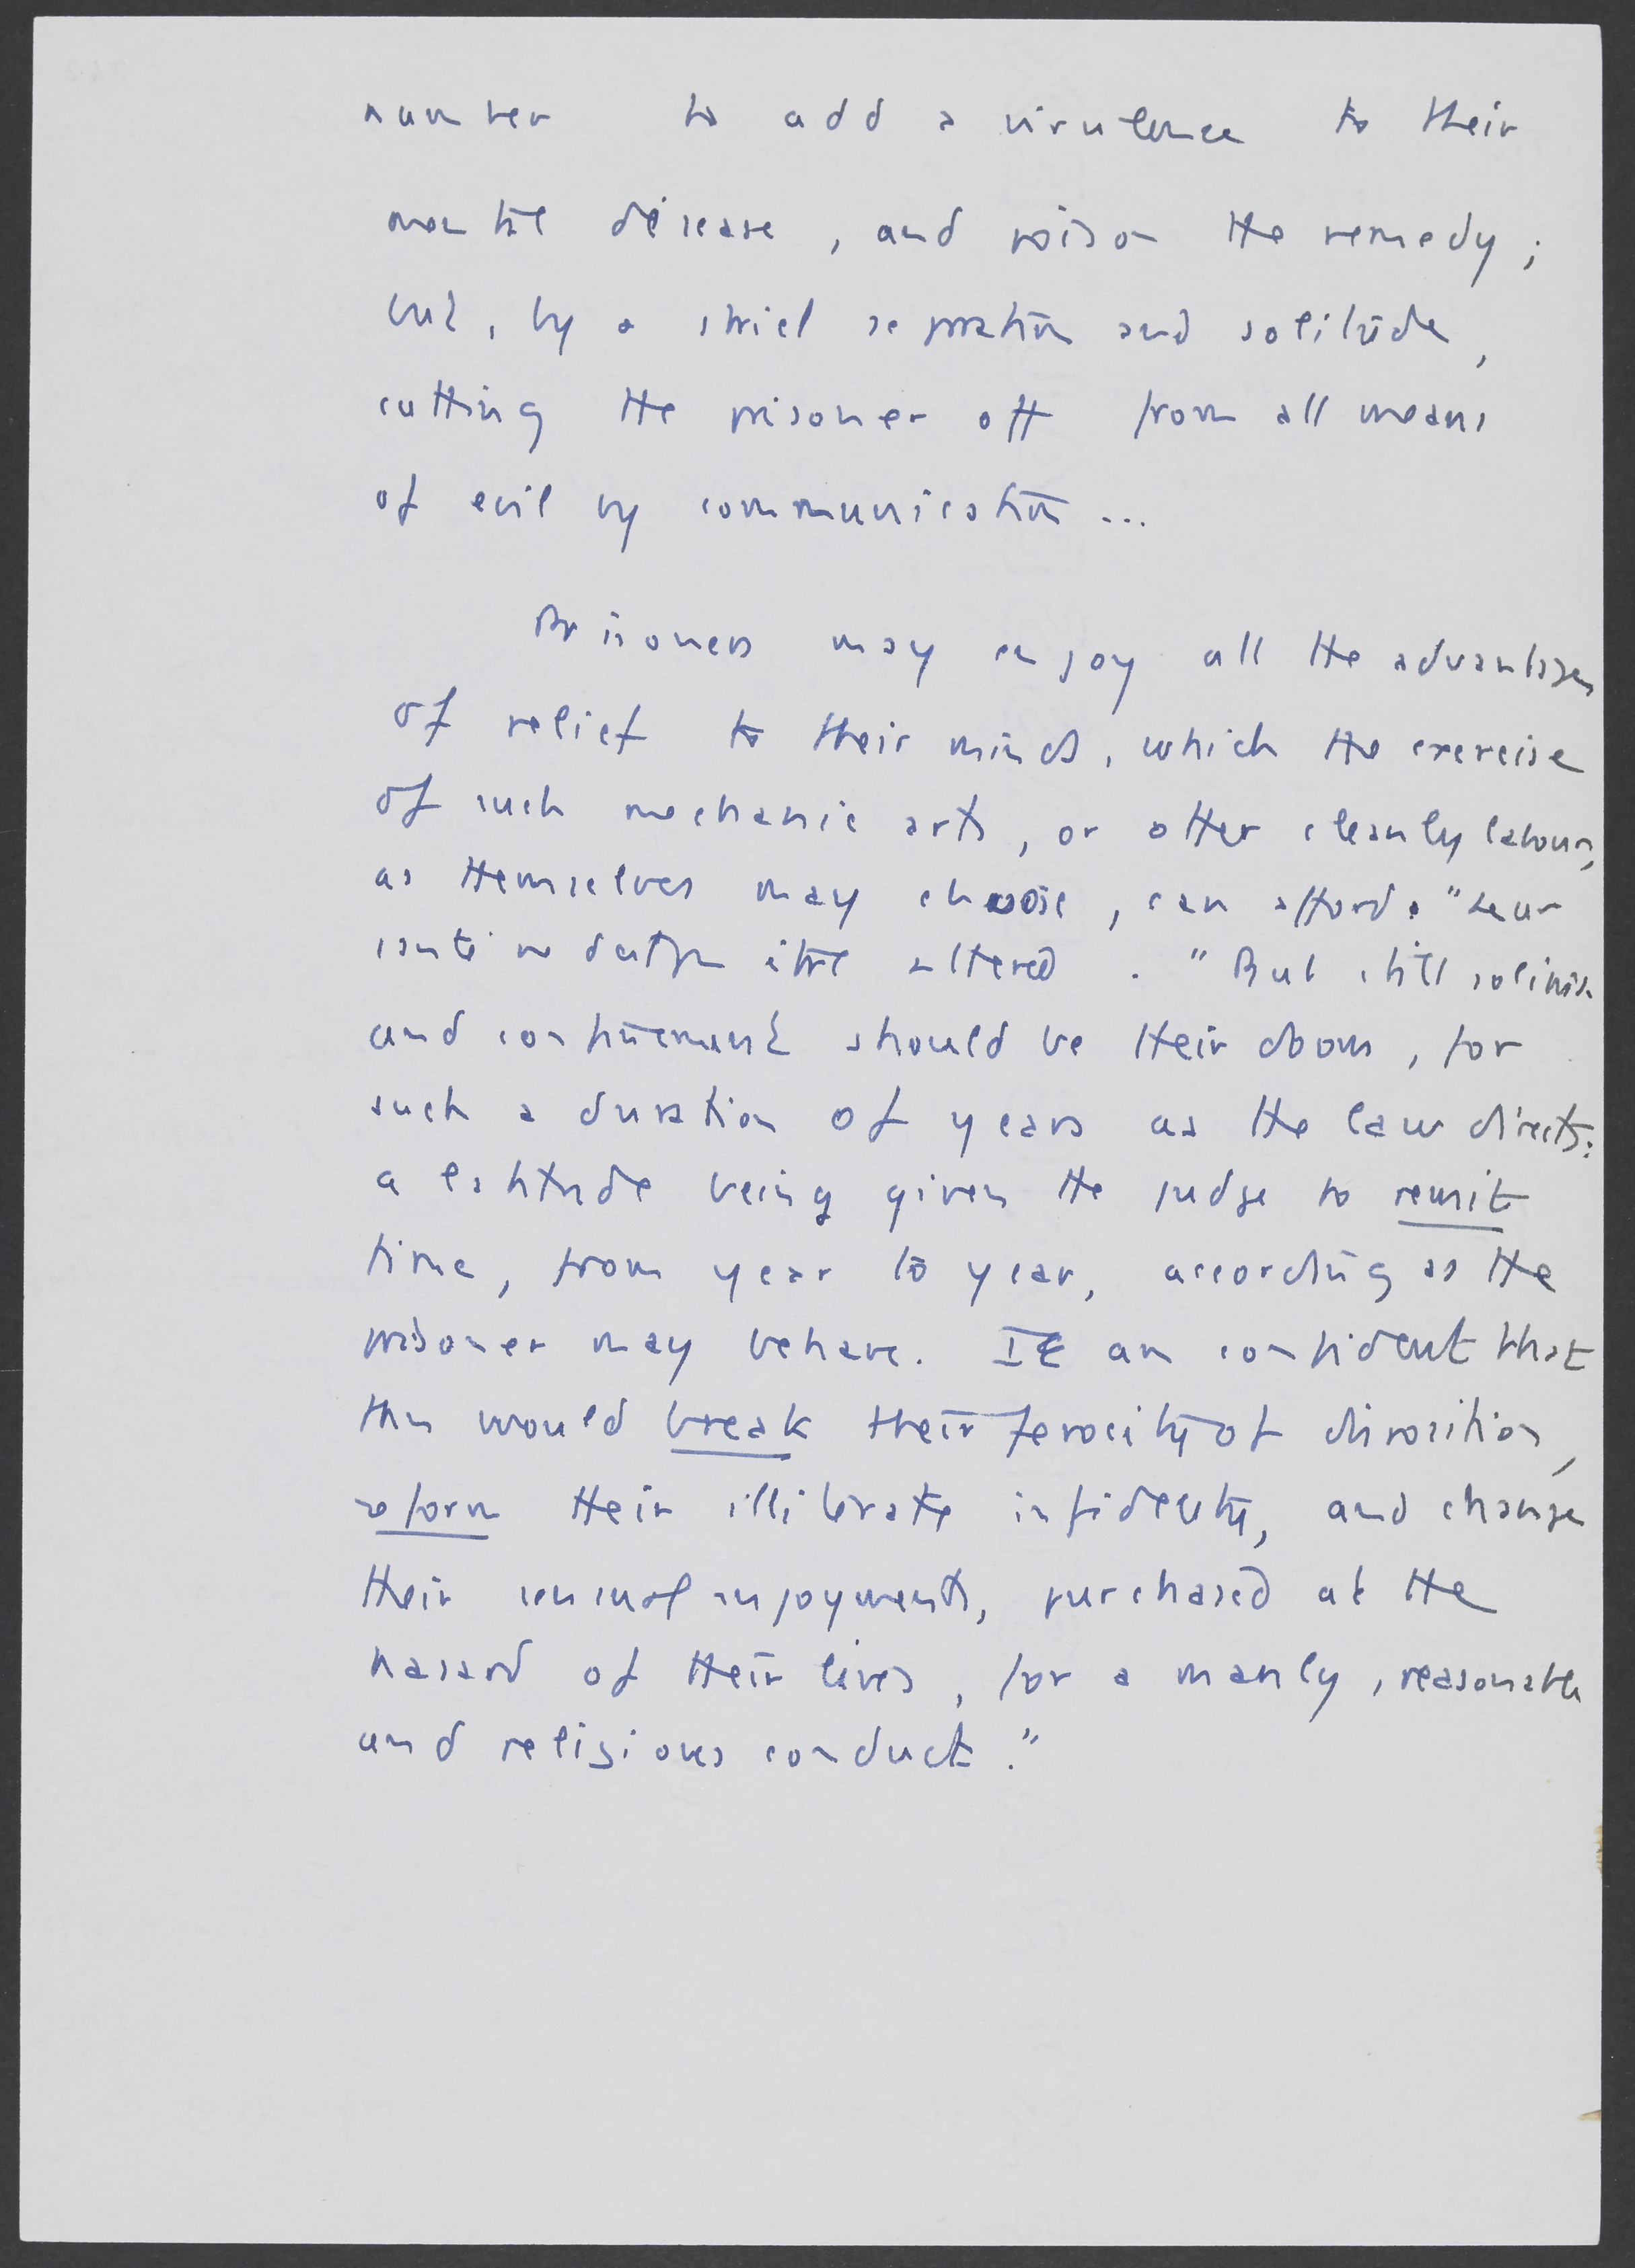 number to add a virulence to their
mental disease, and poison the remedy;
but, by a strict separation and solitude,
cutting the prisoner off from all means
of evil by communication...
Prisoners may enjoy all the advantages
of relief to their minds, which the exercise
of such mechanic arts, or other cleanly labours,
as themselves may choose, can afford. "Leur
santé ne doit pas être altered. "But still solitude
and confinement should be their doom, for
such a duration of years as the law directs:
a latitude being given the judge to remit
time, from year to year, according as the
prisoner may behave. I am confident that
this would break their ferocity of disposition,
reform their illiterate infidelity, and change
their sensual injoyments, purchased at the
hasard of their lives, for a manly, reasonable
and religious conduct."